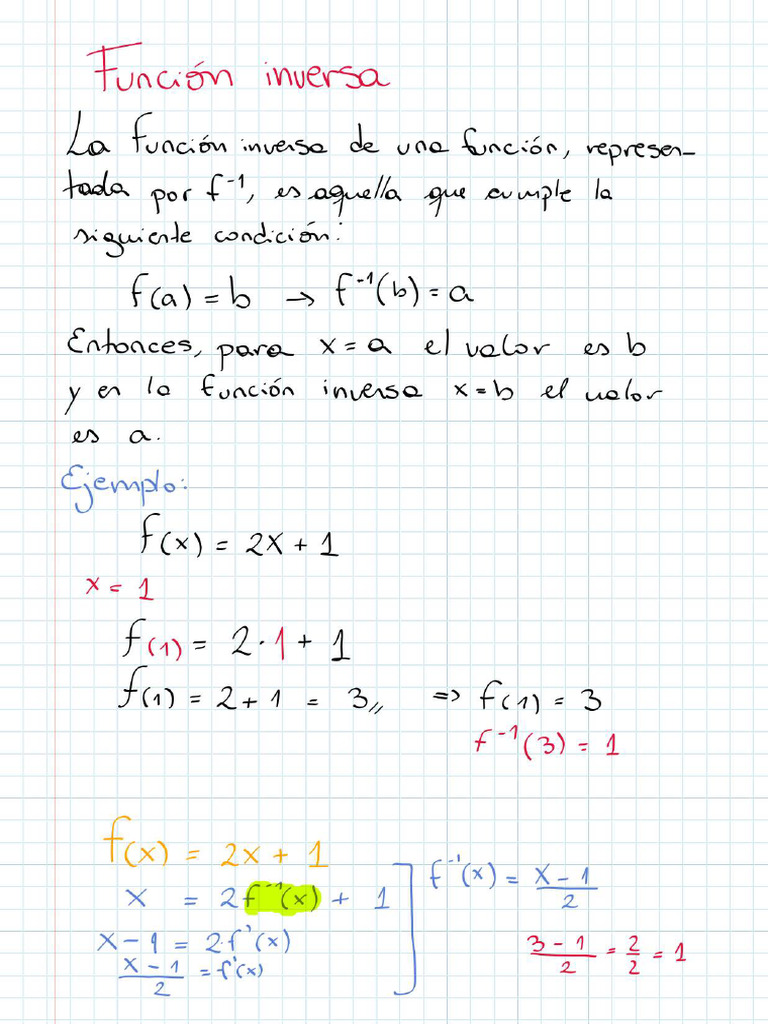 Función inversa
La función inversa de una función, represen-
tada por f⁻¹, es aquella que cumple la
siguiente condición:
f(a) = b → f⁻¹(b) = a
Entonces, para x = a el valor es b
y en la función inversa x = b el valor
es a.
Ejemplo:
f(x) = 2x + 1
x = 1
f(1) = 2 · 1 + 1
f(1) = 2 + 1 = 3,, ⇒ f(1) = 3
f⁻¹(3) = 1
f(x) = 2x + 1
x = 2f⁻¹(x) + 1
f⁻¹(x) = x - 1 / 2
x - 1 = 2·f⁻¹(x)
x - 1 / 2 = f⁻¹(x)
3 - 1 / 2 = 2/2 = 1